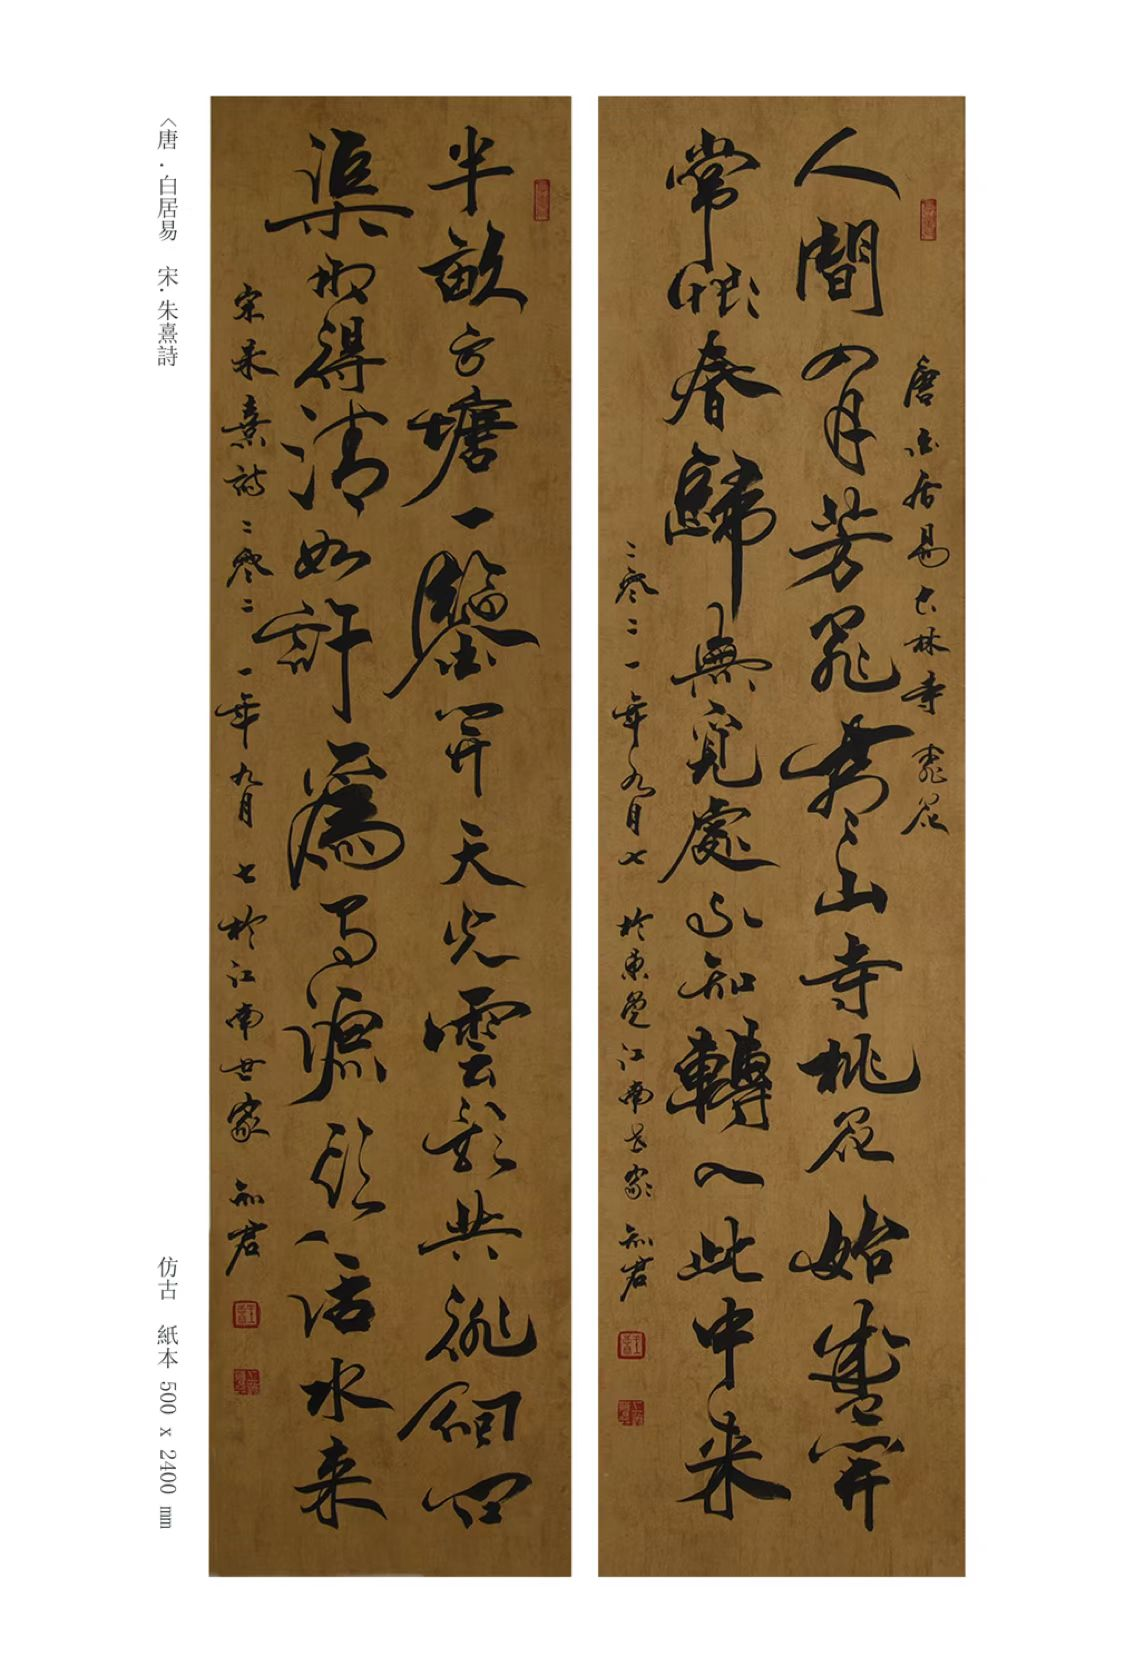 唐白居易大林寺桃花
人間四月芳菲盡山寺桃花始盛開
常恨春歸無覓處不知轉入此中来
二零二一年九月七於東莞江南世家 知君
半畝方塘一鑒開天光雲影共徘徊問
渠那得清如許爲有源頭活水来
宋朱熹詩二零二一年九月七於江南世家 知君
〈唐．白居易 宋．朱熹詩
仿古 紙本 500 x 2400 mm